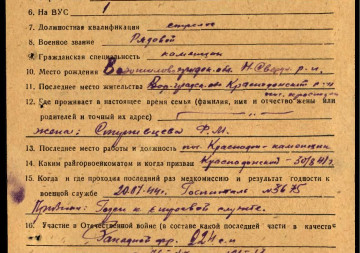 6. На ВУС 1
7. Должностная квалификация стрелок
8. Военное звание Рядовой
9. Гражданская специальность каменщик
10. Место рождения Ворошиловградск. обл. Н. р-н
11. Последнее место жительства Вор-градск. обл. Краснодонский р-н
12. Где проживает в настоящее время семья (фамилия, имя и отчество жены или
родителей и точный их адрес)
жена: Ф. М.
13. Последнее место работы и должность Краснодон - каменщик
14. Каким райгорвоенкоматом и когда призван Краснодонский - 30/8 41 г.
15. Когда и где проходил последний раз медкомиссию и результат годности к
военной службе 20.07.44 г. Госпиталь № 3675
Признан: Годен к строевой службе.
16. Участие в Отечественной войне (в составе какой последней части и в качестве
Западной фр. 224 с.п